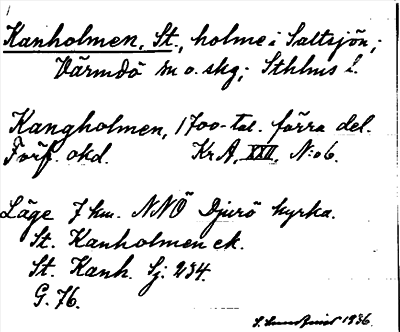 Kanholmen, St., holme i Saltsjön;
Värmdö sn o. skg; Sthlms l.
Kangholmen, 1700-tal. förra del.
Förf. okd. Kr A, XXII, N:o 6.
Läge 7 km. NNÖ Djurö kyrka.
St. Kanholmen ek.
St. Kanh. Sj. 234.
G. 76.
1936.